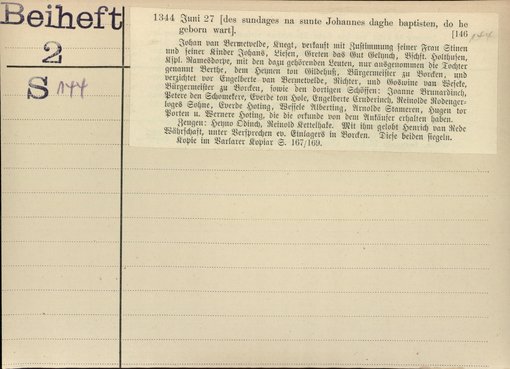 Beiheft
2
S 144
1344 Juni 27 [des sundages na sunte Johannes daghe baptisten, do he
geborn wart]. [146 144
Johan van Vermetvelde, Knegt, verkauft mit Zustimmung seiner Frau Stinen
und seiner Kinder Johans, Liesen, Greten das Gut Holthusen,
Kspl. Ramesdorpe, mit den dazu gehörenden Leuten, nur ausgenommen die Tochter
genannt Berthe, dem Heynen ton Gildehuß, Bürgermeister zu Borken, und
verzichtet vor Engelberte van Vermetvelde, Richter, und Goswine van Weseke,
Bürgermeister zu Borken, sowie den dortigen Schöffen: Joanne
Petere den Schomekere, Everde ton Hole, Engelberte Reinolde Rodenger-
loges Sohne, Everde Hoting, Wessele Alberting, Arnolde Stameren, Hugen tor
Porten u. Wernere Hoting, die die Urkunde von dem Ankäufer erhalten haben.
Zeugen: Heyno Odinch, Reinold Kettelhake. Mit ihm gelobt Henrich van Rede
Währschaft, unter Versprechen ev. Einlagers in Borcken. Diese beiden siegeln.
Kopie im Varlarer Kopiar S. 167/169.